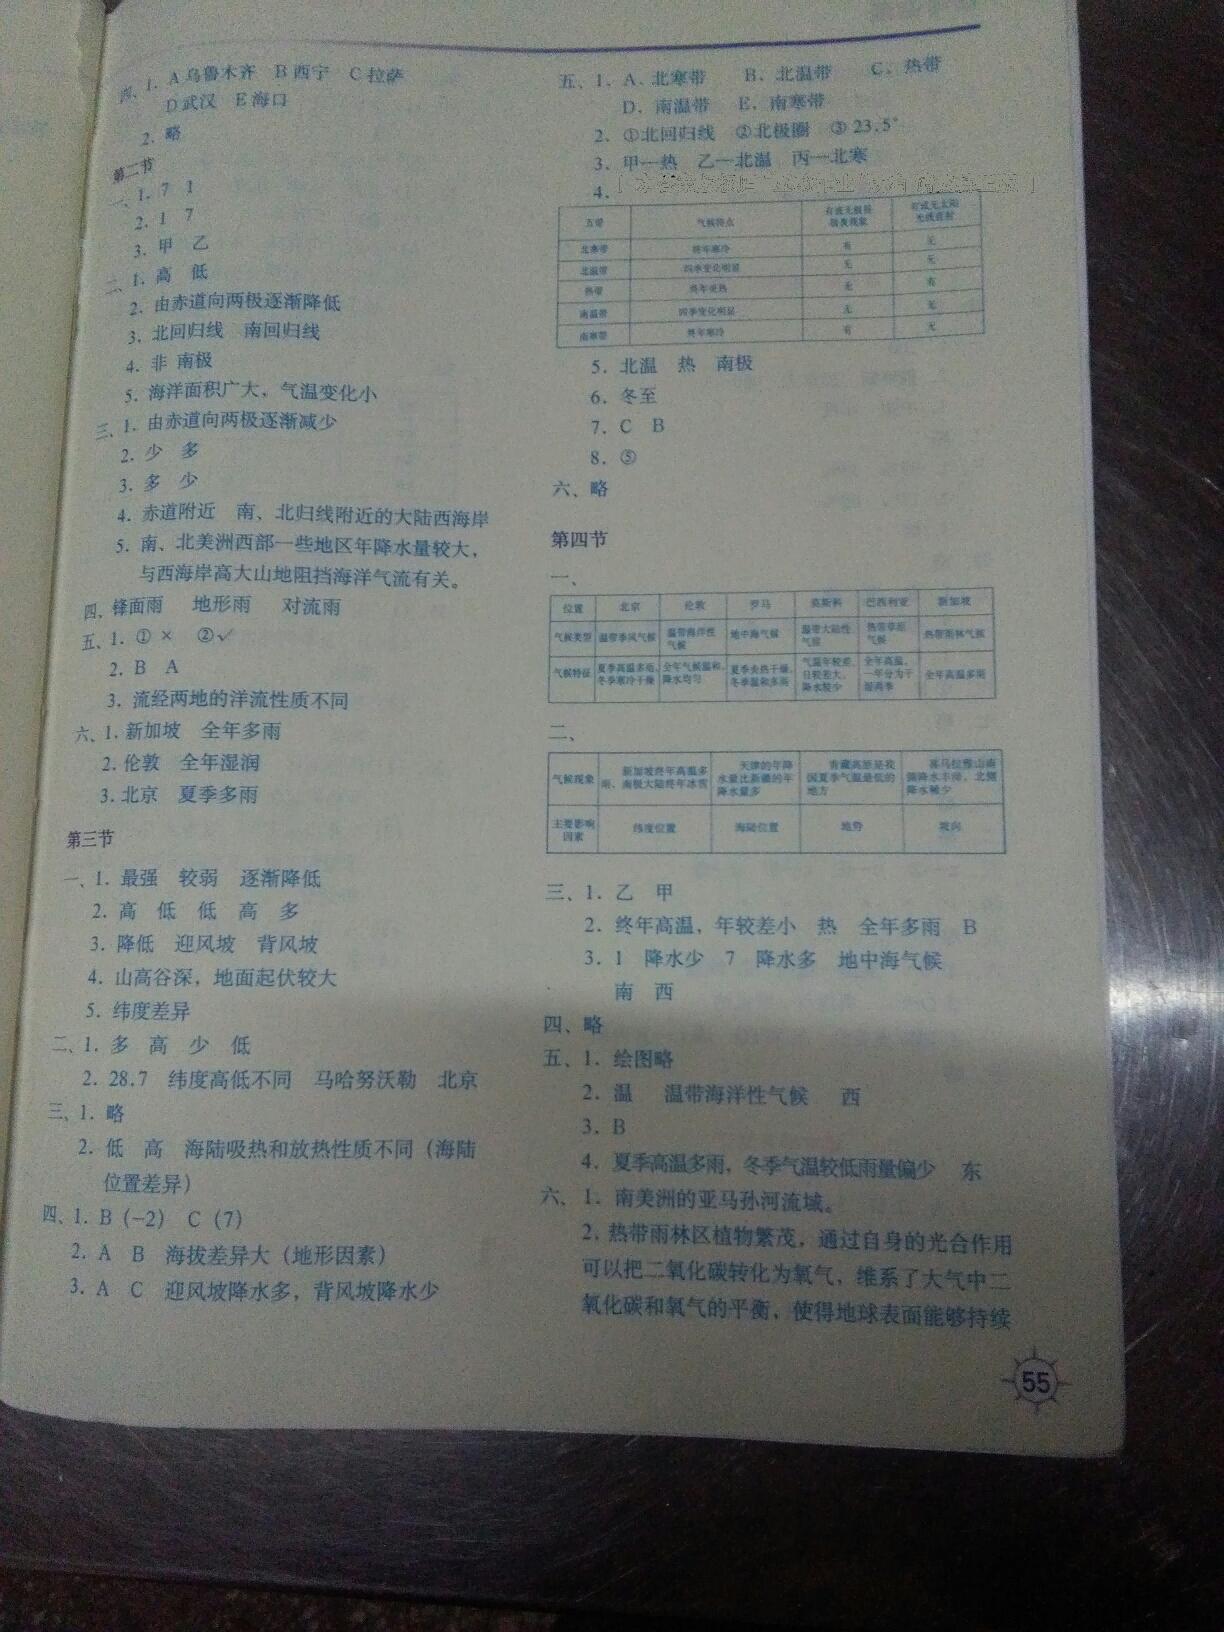 四、1. A乌鲁木齐 B西宁 C拉萨
D武汉 E海口
2. 略
第二节
一、1. 7 1
2. 1 7
3. 甲 乙
二、1. 高 低
2. 由赤道向两极逐渐降低
3. 北回归线 南回归线
4. 非 南极
5. 海洋面积广大，气温变化小
三、1. 由赤道向两极逐渐减少
2. 少 多
3. 多 少
4. 赤道附近 南、北归线附近的大陆西海岸
5. 南、北美洲西部一些地区年降水量较大，
与西海岸高大山地阻挡海洋气流有关。
四、锋面雨 地形雨 对流雨
五、1. ①× ②✓
2. B A
3. 流经两地的洋流性质不同
六、1. 新加坡 全年多雨
2. 伦敦 全年湿润
3. 北京 夏季多雨
第三节
一、1. 最强 较弱 逐渐降低
2. 高 低 低 高 多
3. 降低 迎风坡 背风坡
4. 山高谷深，地面起伏较大
5. 纬度差异
二、1. 多 高 少 低
2. 28.7 纬度高低不同 马哈努沃勒 北京
三、1. 略
2. 低 高 海陆吸热和放热性质不同（海陆
位置差异）
四、1. B（-2） C（7）
2. A B 海拔差异大（地形因素）
3. A C 迎风坡降水多，背风坡降水少
五、1. A、北寒带 B、北温带 C、热带
D、南温带 E、南寒带
2. ①北回归线 ②北极圈 ③23.5°
3. 甲—热 乙—北温 丙—北寒
4.
五带 气候特点 有或无极昼极夜现象 有或无太阳光线直射
北寒带 终年寒冷 有 无
北温带 四季变化明显 无 无
热带 终年炎热 无 有
南温带 四季变化明显 无 无
南寒带 终年寒冷 有 无
5. 北温 热 南极
6. 冬至
7. C B
8. ⑤
六、略
第四节
一、
位置 北京 伦敦 罗马 莫斯科 巴西利亚 新加坡
气候类型 温带季风气候 温带海洋性气候 地中海气候 温带大陆性气候 热带草原气候 热带雨林气候
气候特征 夏季高温多雨、冬季寒冷干燥 全年气候温和，降水均匀 夏季炎热干燥，冬季温和多雨 气温年较差、日较差大，降水较少 全年高温，一年分为干湿两季 全年高温多雨
二、
气候现象 新加坡终年高温多雨、南极大陆终年冰雪 天津的年降水量比新疆的年降水量多 青藏高原是我国夏季气温最低的地方 喜马拉雅山南侧降水丰沛，北侧降水稀少
主要影响因素 纬度位置 海陆位置 地势 坡向
三、1. 乙 甲
2. 终年高温，年较差小 热 全年多雨 B
3. 1 降水少 7 降水多 地中海气候
南 西
四、略
五、1. 绘图略
2. 温 温带海洋性气候 西
3. B
4. 夏季高温多雨，冬季气温较低雨量偏少 东
六、1. 南美洲的亚马孙河流域。
2. 热带雨林区植物繁茂，通过自身的光合作用
可以把二氧化碳转化为氧气，维系了大气中二
氧化碳和氧气的平衡，使得地球表面能够持续
55